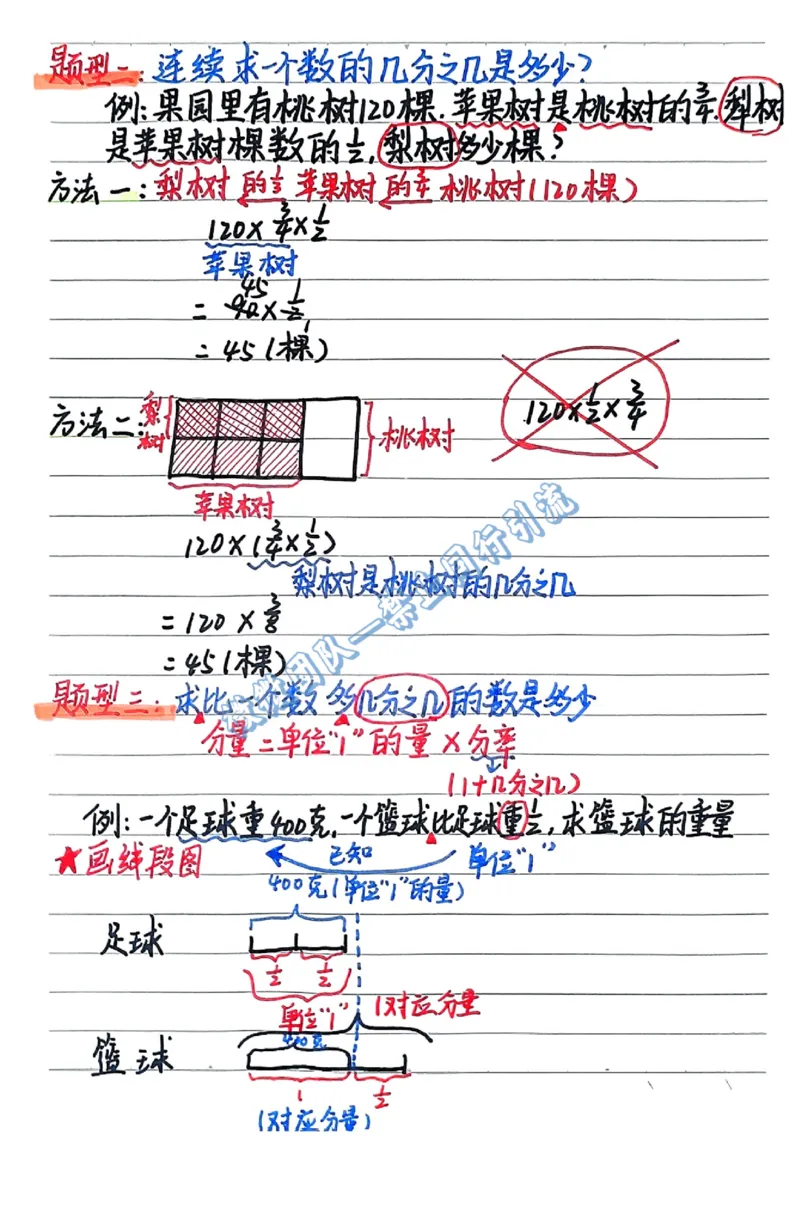 题型一:连续求一个数的几分之几是多少?
例:果园里有桃树120棵.苹果树是桃树的3/4.梨树
是苹果树棵数的1/2,梨树多少棵?
方法一:梨树的1/2苹果树的3/4桃树(120棵)
120×3/4×1/2
苹果树
45 1
=90×1/2
=45(棵)
120×1/2×3/4
方法二:
梨树
桃树
苹果树
120×(3/4×1/2)
梨树是桃树的几分之几
=120×3/8
=45(棵)
题型二:求比一个数多几分之几的数是多少
分量=单位"1"的量×分率
(1+几分之几)
例:一个足球重400克,一个篮球比足球重1/2,求篮球的重量
★画线段图
已知
单位"1"
400克(单位"1"的量)
足球
1/2 1/2
单位"1"
1对应分量
400克
篮球
1
1/2
(对应分量)